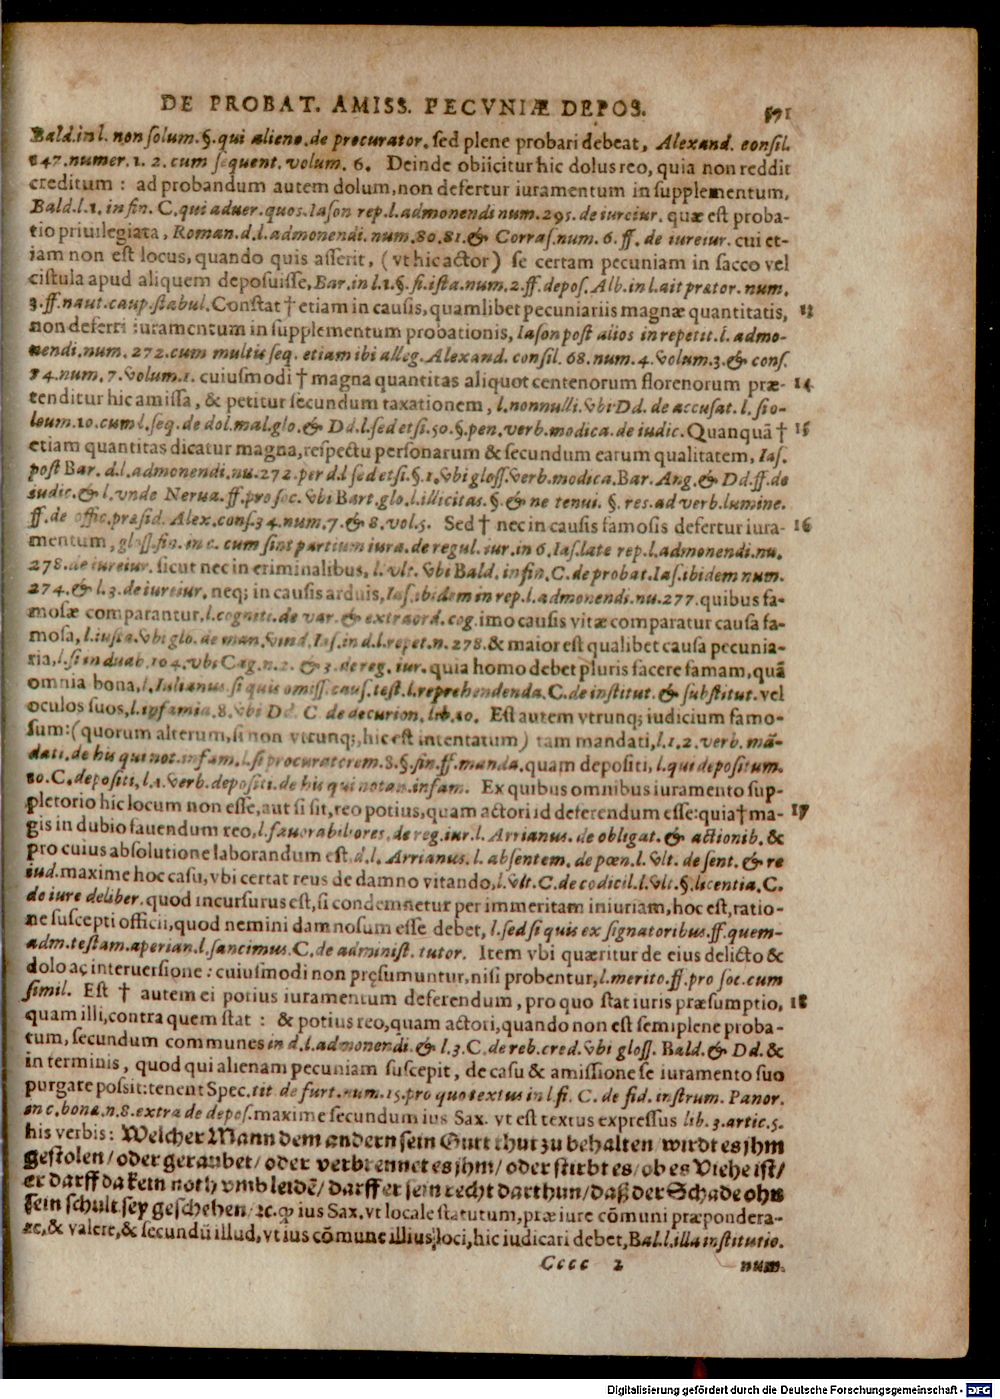 DE PROBAT. AMISS. PECVNIÆ DEPOS. 571
Bald. in l. non solum. §. qui alieno. de procurator. sed plene probari debeat, Alexand. consil.
147. numer. 1. 2. cum sequent. volum. 6. Deinde obiicitur hic dolus reo, quia non reddit
creditum: ad probandum autem dolum, non defertur iuramentum in supplementum,
Bald. l. 1. in fin. C. qui aduer. quos. Iason rep. l. admonendi num. 295. de iureiur. quæ est proba-
tio priuilegiata, Roman. d. l. admonendi. num. 80. 81. & Corras. num. 6. ff. de iureiur. cui et-
iam non est locus, quando quis asserit, (vt hic actor) se certam pecuniam in sacco vel
cistula apud aliquem deposuisse, Bar. in l. 1. §. si ista. num. 2. ff. depos. Alb. in l. ait prætor. num.
3. ff. naut. caup. stabul. Constat † etiam in causis, quamlibet pecuniariis magnæ quantitatis, 13
non deferri iuramentum in supplementum probationis, Iason post alios in repetit. l. admo-
nendi. num. 272. cum multis seq. etiam ibi alleg. Alexand. consil. 68. num. 4. volum. 3. & cons.
14. num. 7. volum. 1. cuiusmodi † magna quantitas aliquot centenorum florenorum præ- 14
tenditur hic amissa, & petitur secundum taxationem, l. nonnulli. vbi Dd. de accusat. l. sio-
loum. 10. cum l. seq. de dol. mal. glo. & Dd. l. sed etsi. 50. §. pen. verb. modica. de iudic. Quanquã † 15
etiam quantitas dicatur magna, respectu personarum & secundum earum qualitatem, Ias.
post Bar. d. l. admonendi. nu. 272. per d. l. sed etsi. §. 1. vbi gloss. verb. modica. Bar. Ang. & Dd. ff. de
iudic. & l. vnde Nerua. ff. pro soc. vbi Bart. glo. l. illicitas. §. & ne tenui. §. res. ad verb. lumine.
ff. de offic. præsid. Alex. cons. 34. num. 7. & 8. vol. 5. Sed † nec in causis famosis defertur iura- 16
mentum, gloss. fin. in c. cum sint partium iura. de regul. iur. in 6. Ias. late rep. l. admonendi. nu.
278. de iureiur. sicut nec in criminalibus, l. vlt. vbi Bald. in fin. C. de probat. Ias. ibidem num.
274. & l. 3. de iureiur. neq; in causis arduis, Ias. ibidem in rep. l. admonendi. nu. 277. quibus fa-
mosæ comparantur, l. cogniti. de var. & extraord. cog. imo causis vitæ comparatur causa fa-
mosa, l. iusta. vbi glo. de man. vind. Ias. in d. l. repet. n. 278. & maior est qualibet causa pecunia-
ria, l. si in duab. 104. vbi Cag. n. 2. & 3. de reg. iur. quia homo debet pluris facere famam, quã
omnia bona, l. Iulianus. si quis omiss. caus. test. l. reprehendenda. C. de institut. & substitut. vel
oculos suos, l. infamia. 8. vbi Dd. C. de decurion. lib. 10. Est autem vtrunq; iudicium famo-
sum: (quorum alterum, si non vtrunq;, hic est intentatum) tam mandati, l. 1. 2. verb. mã-
dati. de his qui not. infam. l. si procuratorem. 8. §. fin. ff. manda. quam depositi, l. qui depositum.
10. C. depositi, l. 1. verb. depositi. de his qui notan. infam. Ex quibus omnibus iuramento sup-
pletorio hic locum non esse, aut si sit, reo potius, quam actori id deferendum esse: quia † ma- 17
gis in dubio fauendum reo, l. fauorabiliores. de reg. iur. l. Arrianus. de obligat. & actionib. &
pro cuius absolutione laborandum est, d. l. Arrianus. l. absentem. de pœn. l. vlt. de sent. & re
iud. maxime hoc casu, vbi certat reus de damno vitando, l. vlt. C. de codicil. l. vlt. §. licentia. C.
de iure deliber. quod incursurus est, si condemnetur per immeritam iniuriam, hoc est, ratio-
ne suscepti officii, quod nemini damnosum esse debet, l. sed si quis ex signatoribus. ff. quem-
adm. testam. aperian. l. sancimus. C. de administ. tutor. Item vbi quæritur de eius delicto &
dolo aç interuersione: cuiusmodi non pręsumuntur, nisi probentur, l. merito. ff. pro soc. cum
simil. Est † autem ei potius iuramentum deferendum, pro quo stat iuris præsumptio, 18
quam illi, contra quem stat: & potius reo, quam actori, quando non est semiplene proba-
tum, secundum communes in d. l. admonendi. & l. 3. C. de reb. cred. vbi gloss. Bald. & Dd. &
in terminis, quod qui alienam pecuniam suscepit, de casu & amissione se iuramento suo
purgare possit: tenent Spec. tit de furt. num. 15. pro quo textus in l. fi. C. de fid. instrum. Panor.
in c. bona. n. 8. extra de depos. maxime secundum ius Sax. vt est textus expressus lib. 3. artic. 5.
his verbis: Welcher Mann dem andern sein Gutt thut zu behalten / wirdt es jhm
gestolen / oder geraubet / oder verbrennet es jhm / oder stirbt es / ob es Viehe ist /
er darff da kein noth vmb leidẽ / darff er sein recht darthun / daß der Schade ohn
sein schult sey geschehen / ꝛc. ꝙ ius Sax. vt locale statutum, præ iure cõmuni præpondera-
ꝛc, & valere, & secundũ illud, vt ius cõmune illius loci, hic iudicari debet, Bal. l. illa institutio.
Cccc 2 num.
Digitalisierung gefördert durch die Deutsche Forschungsgemeinschaft - DFG